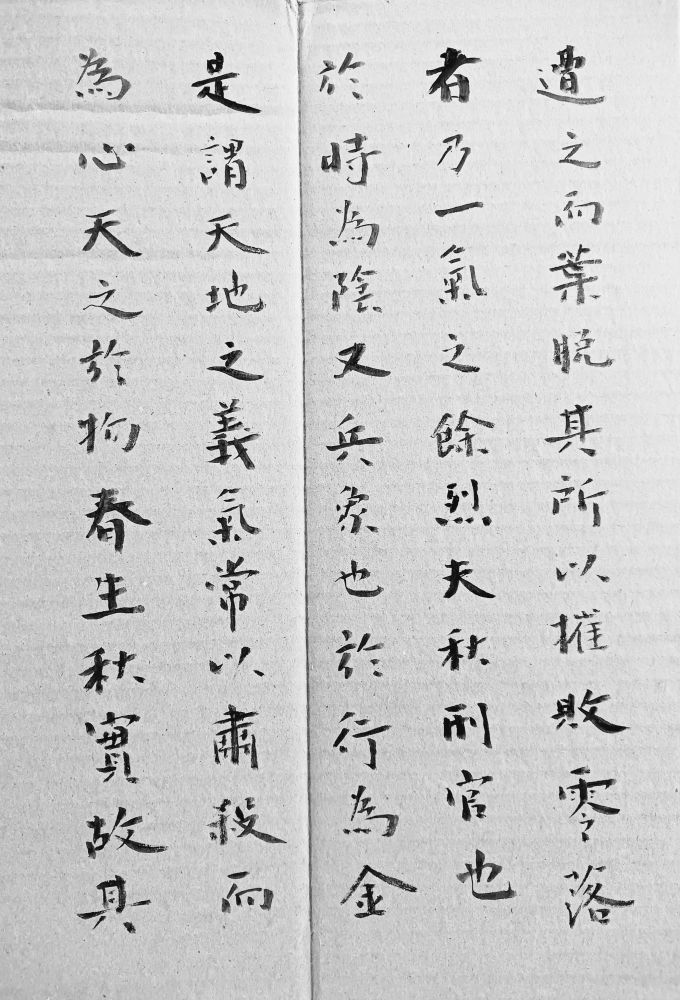 遭之而葉脫其所以摧敗零落
者乃一氣之餘烈夫秋刑官也
於時為陰又兵象也於行為金
是謂天地之義氣常以肅殺而
為心天之於物春生秋實故其